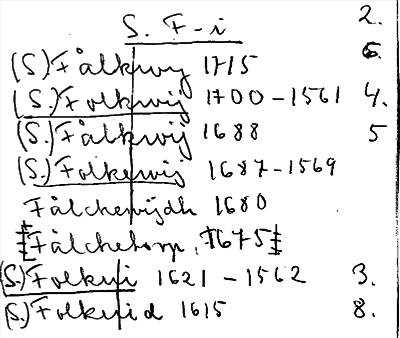 S. F-i 2.
(S) Fålkwy 1715 6.
(S.) Folkwij 1700-1561 4.
(S.) Fålkwij 1688 5
(S.) Folkewij 1687-1569
Fålchewijdh 1680
Fålchetorp. 1675
(S.) Folkvi 1621-1562 3.
(S.) Folkvid 1615 8.